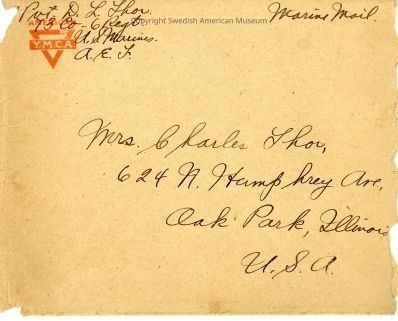 Copyright Swedish American Museum
Pvt. D. L. Thor.
75 Co. 6 Regt
U.S. Marines.
A.E.F.
AMERICAN
Y.M.C.A.
Marine Mail.
Mrs. Charles Thor,
624 N. Humphrey Ave,
Oak Park, Illinois
U.S.A.